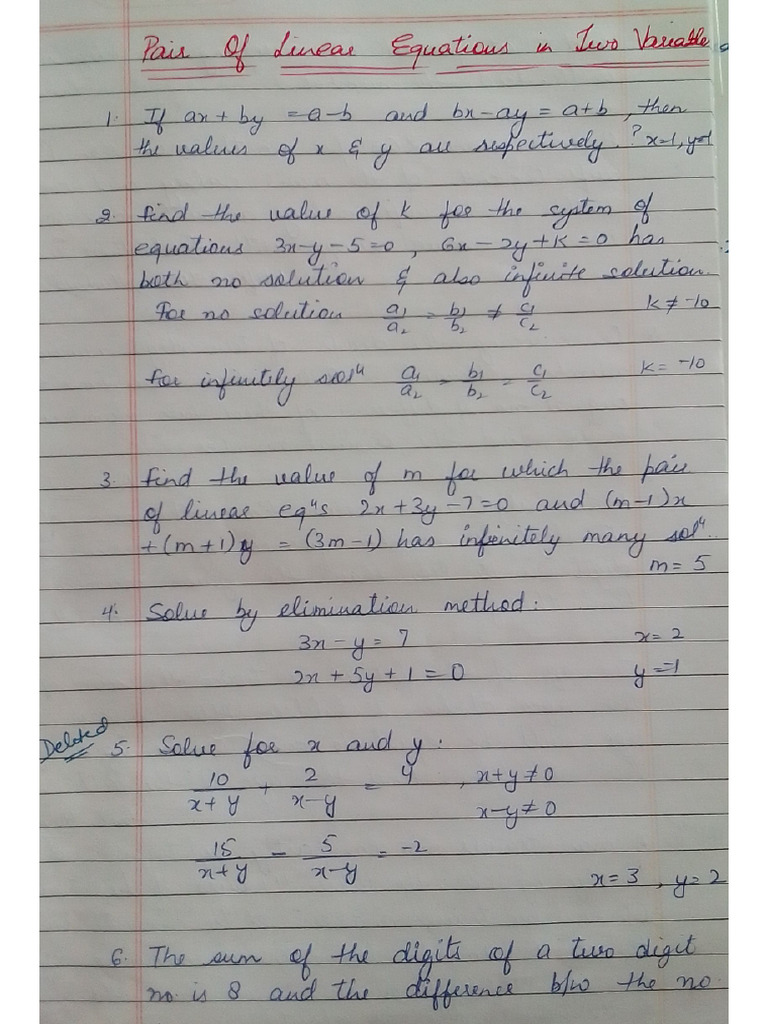 Pair Of Linear Equations in Two Variable
1. If ax + by = a-b and bx-ay = a+b, then
the values of x & y are respectively.? x=1, y=-1
2. find the value of k for the system of
equations 3x-y-5=0, 6x-2y+k=0 has
both no solution & also infinite solution.
For no solution a1/a2 = b1/b2 ≠ c1/c2 k ≠ -10
for infinitely solⁿ a1/a2 = b1/b2 = c1/c2 k = -10
3. find the value of m for which the pair
of linear eqⁿs 2x+3y-7=0 and (m-1)x
+(m+1)y = (3m-1) has infinitely many solⁿ.
m= 5
4. Solve by elimination method:
3x-y= 7 x= 2
2x + 5y + 1 = 0 y=-1
Deleted 5. Solve for x and y:
10/(x+y) + 2/(x-y) = 4, x+y≠0
x-y≠0
15/(x+y) - 5/(x-y) = -2
x=3, y=2
6. The sum of the digits of a two digit
no. is 8 and the difference b/w the no.